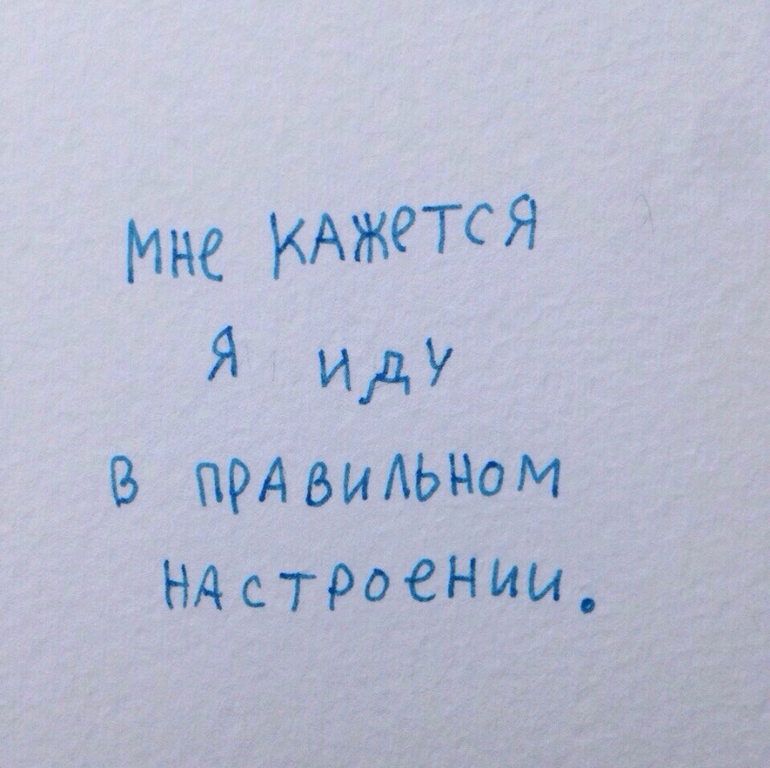 мне кажется
я иду
в правильном
настроении.